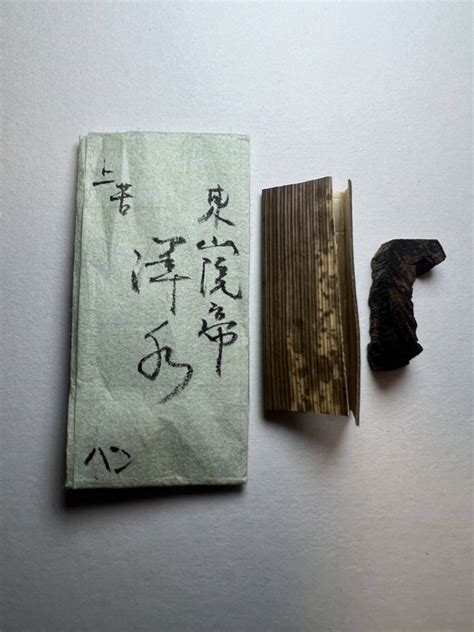 東山院帝
澤水
上苦
ハン